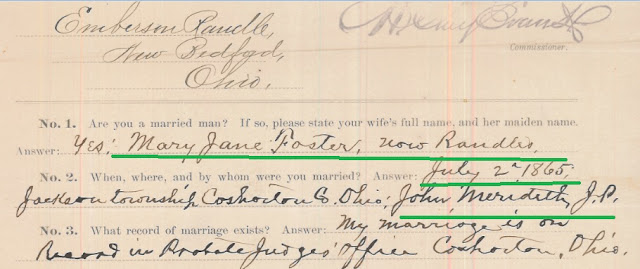 Emberson Randle,
New Bedford,
Ohio.
H. Clay Evans
Commissioner.
No. 1. Are you a married man? If so, please state your wife's full name, and her maiden name.
Answer: Yes: Mary Jane Foster, now Randles.
No. 2. When, where, and by whom were you married? Answer: July 2ⁿ 1865;
Jackson township Coshocton C. Ohio; John Meredith, J.P.
No. 3. What record of marriage exists? Answer: My marriage is on
Record in Probate Judges' Office Coshocton, Ohio.